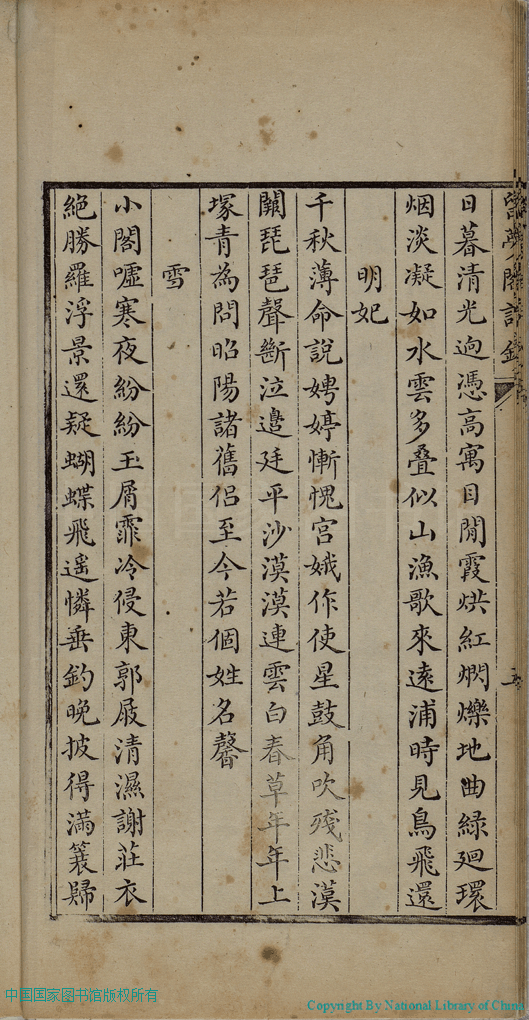 日暮清光逈憑高寓目閒霞烘紅爛爍地曲緑廻環
烟淡凝如水雲多叠似山漁歌來遠浦時見鳥飛還
明妃
千秋薄命說娉婷慚愧宮娥作使星鼓角吹殘悲漠
關琵琶聲斷泣邉廷平沙漠漠連雲白春草年年上
塚青為問昭陽諸舊侶至今若個姓名馨
雪
小閣噓寒夜紛紛玉屑霏冷侵東郭屐清濕謝莊衣
絕勝羅浮景還疑蝴蝶飛遥憐垂釣晚披得滿簑歸
二
中国国家图书馆版权所有
Copyright By National Library of China